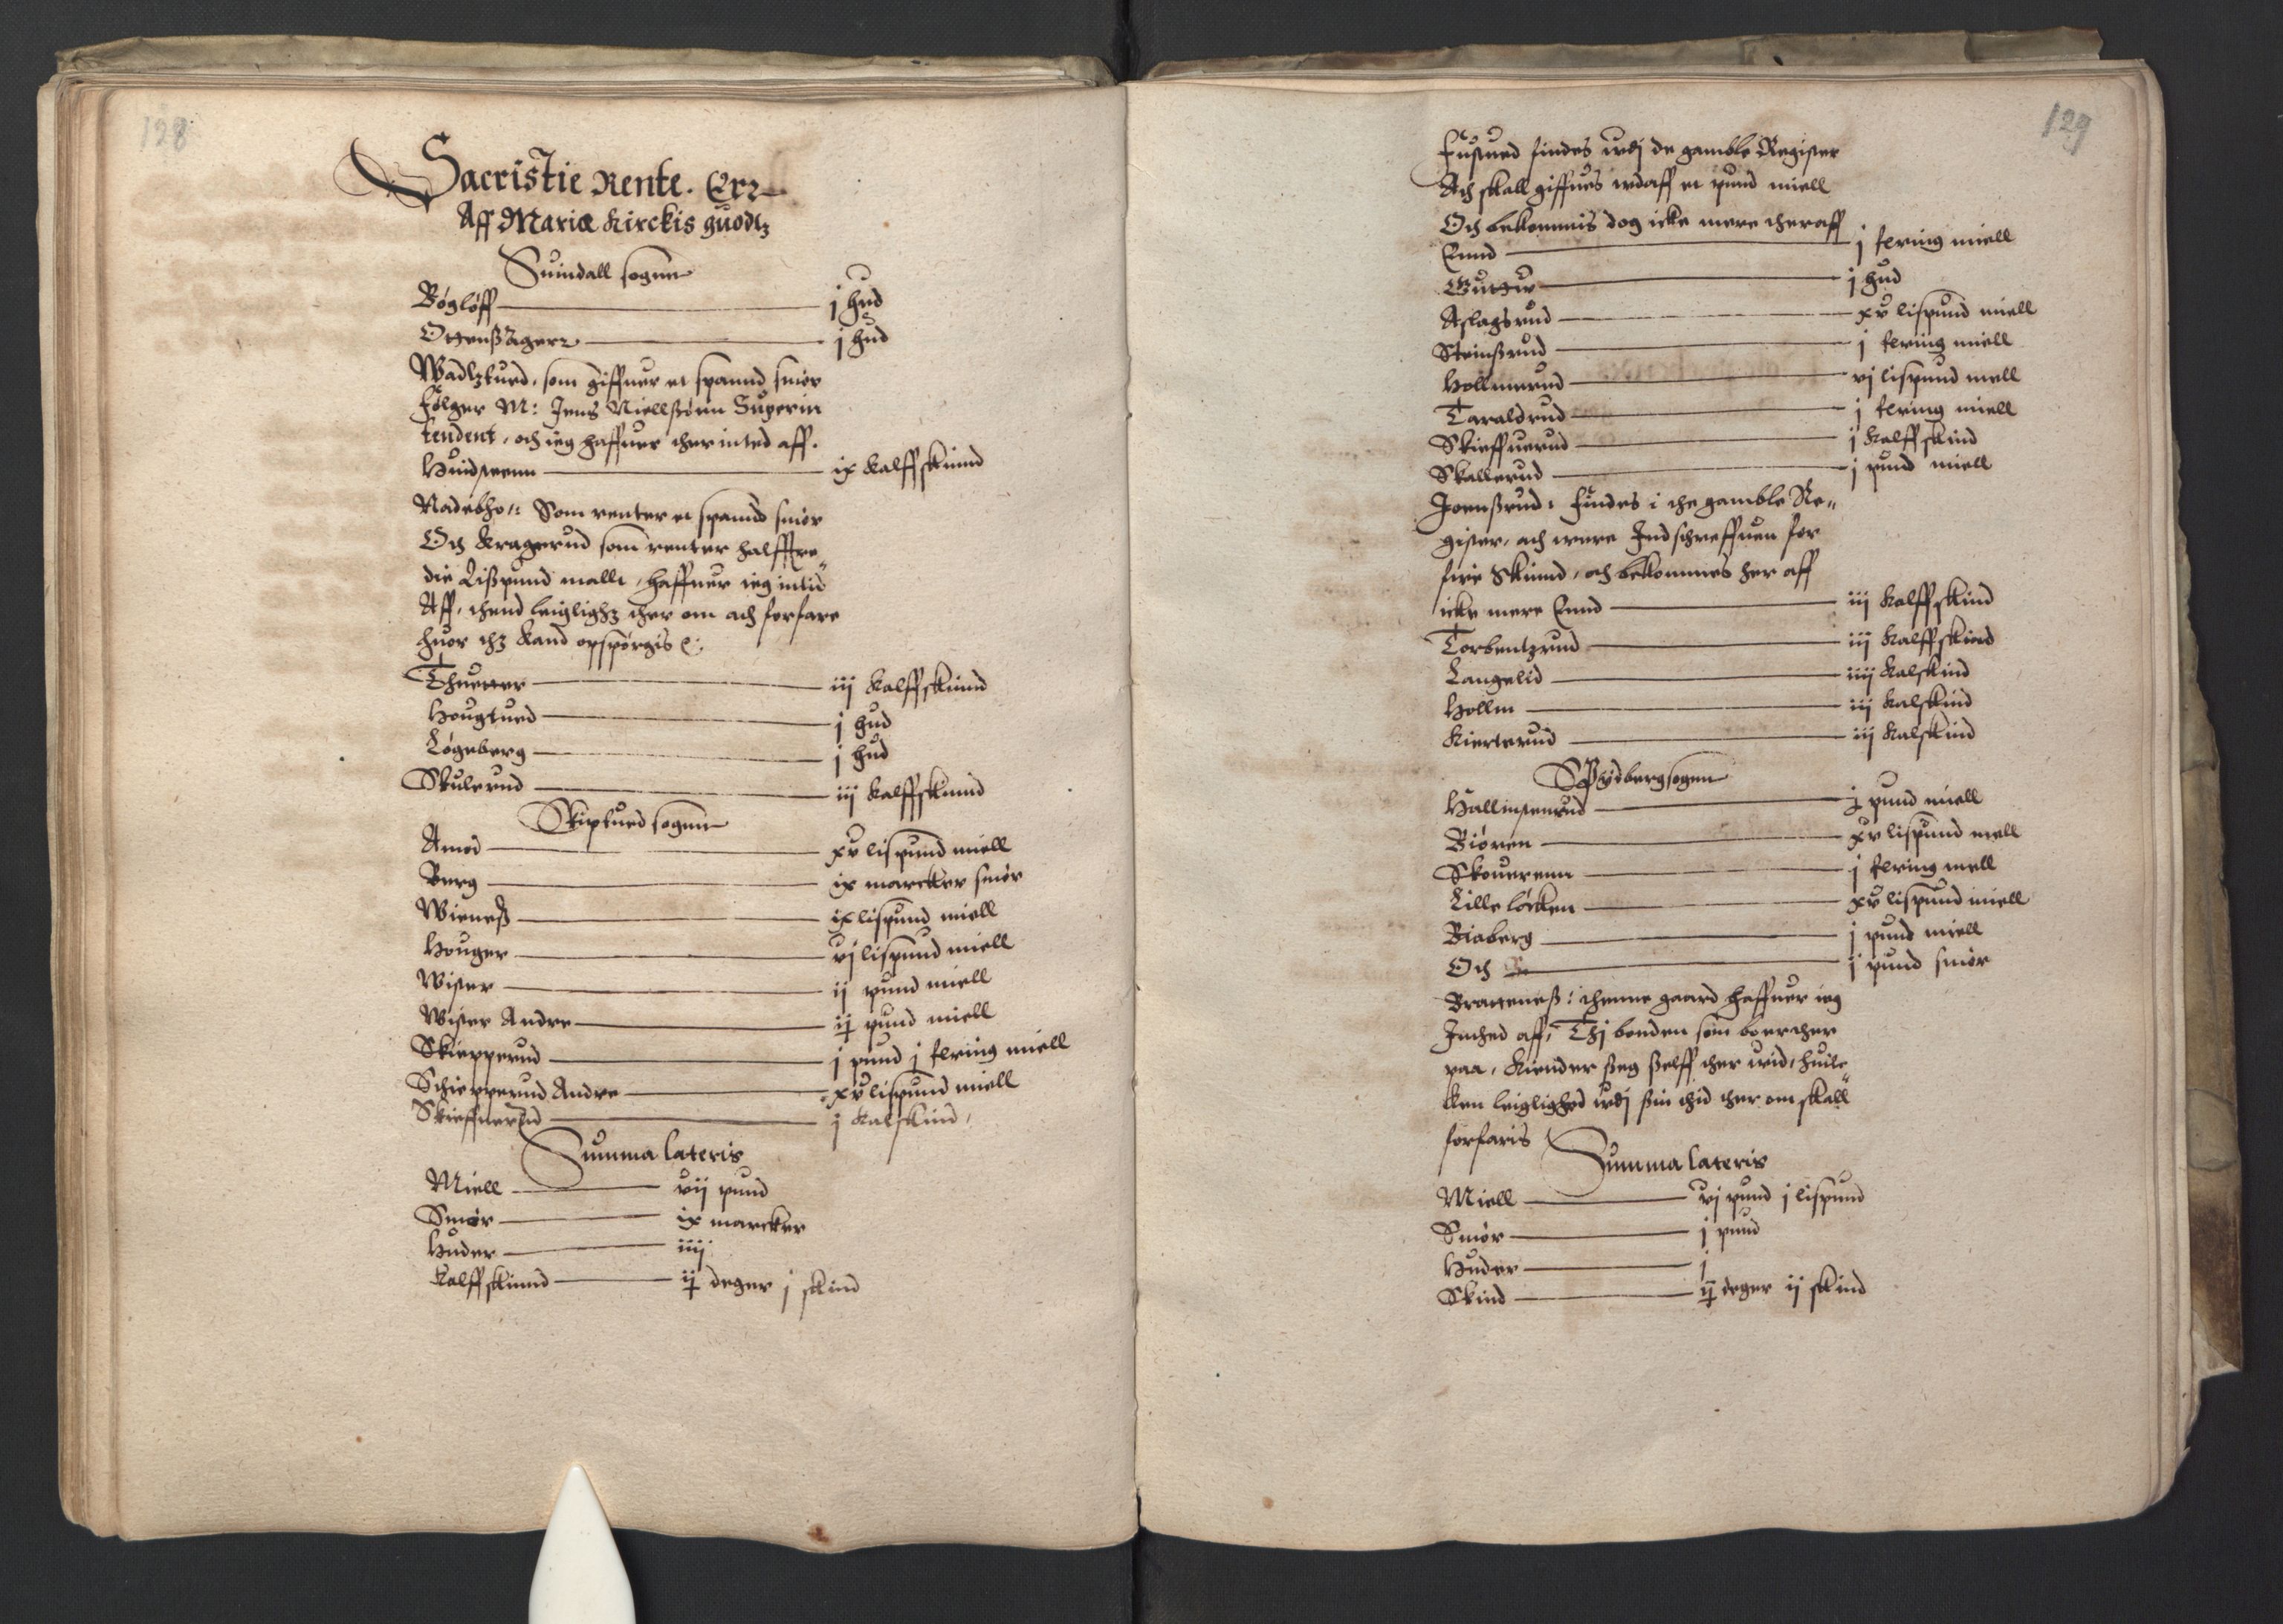 128
Sacristie Rente. Err
Aff Mariæ Kirckis guodtz
Suindall sognn
Bøgløff j hud
Ottenßagerr j hud
Wadlztued, som giffuer et spannd smør
følger M: Jens Niellßønn Superin
tendent, och ieg haffuer ther inted aff.
Huidsteenn ix kalffskinnd
Nadebho: Som renter et spannd smør
Och Kragerud som renter halfftre„
die Lißpund mallt, haffuer ieg intid
Aff, thend leiglighz ther om ach forfare
huor thz kand opspørgis &:
Thuetter iij kalffskinnd
Hougtued j hud
Løgeberg j hud
Skulerud iij kalffskinnd
Skiptued sognn
Amod xv lispund miell
Berg ix marcker smør
Wieneß ix lispund miell
Houger vj lispund miell
Wister ij pund miell
Wister Andre ij pund miell
Skiepperud j pund j fering miell
Schiepperud Andre xv lispund miell
Skieffuerud j kalskind,
Summa lateris
Miell vij pund
Smør ix marcker
Huder iiij
Kalffskinnd ij deger j skind
129
Fustued findes vdj de gamble Register
Ach skall giffues vdaff et pund miell
Och bekommis dog icke mere theraff
Ennd j fering miell
Guttu j hud
Aslagsrud xv lispund miell
Steinßrud j fering miell
Hollmerud vj lispund mell
Taraldrud j fering miell
Skieffuerud j kalffskind
Skallerud j pund miell
Joenßrud: findes i the gamble Re„
gister, ach were Indschreffuen for
fire Skinnd, och bekommes her aff
icke mere Ennd iij kalffskind
Torbentzrud iij kalffskind
Langelid iiij kalskind
Hollm iij kalskind
Kierterud iij kalskind
Spydbergsogenn
Hallinstenrud j pund miell
Biøren xv lispund mell
Skouerenn j fering mell
Lille løcken xv lispund miell
Biaberg j pund miell
Och j pund smør
Bratteneß: thenne gaard haffuer ieg
Inthed aff, Thj bonden som boer ther
paa, Kiender seg ßelff ther vid, huile„
cken leiglighed vdj sin thid ther om skall
forfaris
Summa lateris
Miell vj pund j lispund
Smør j pund
Huder j
Skind ij deger ij skind